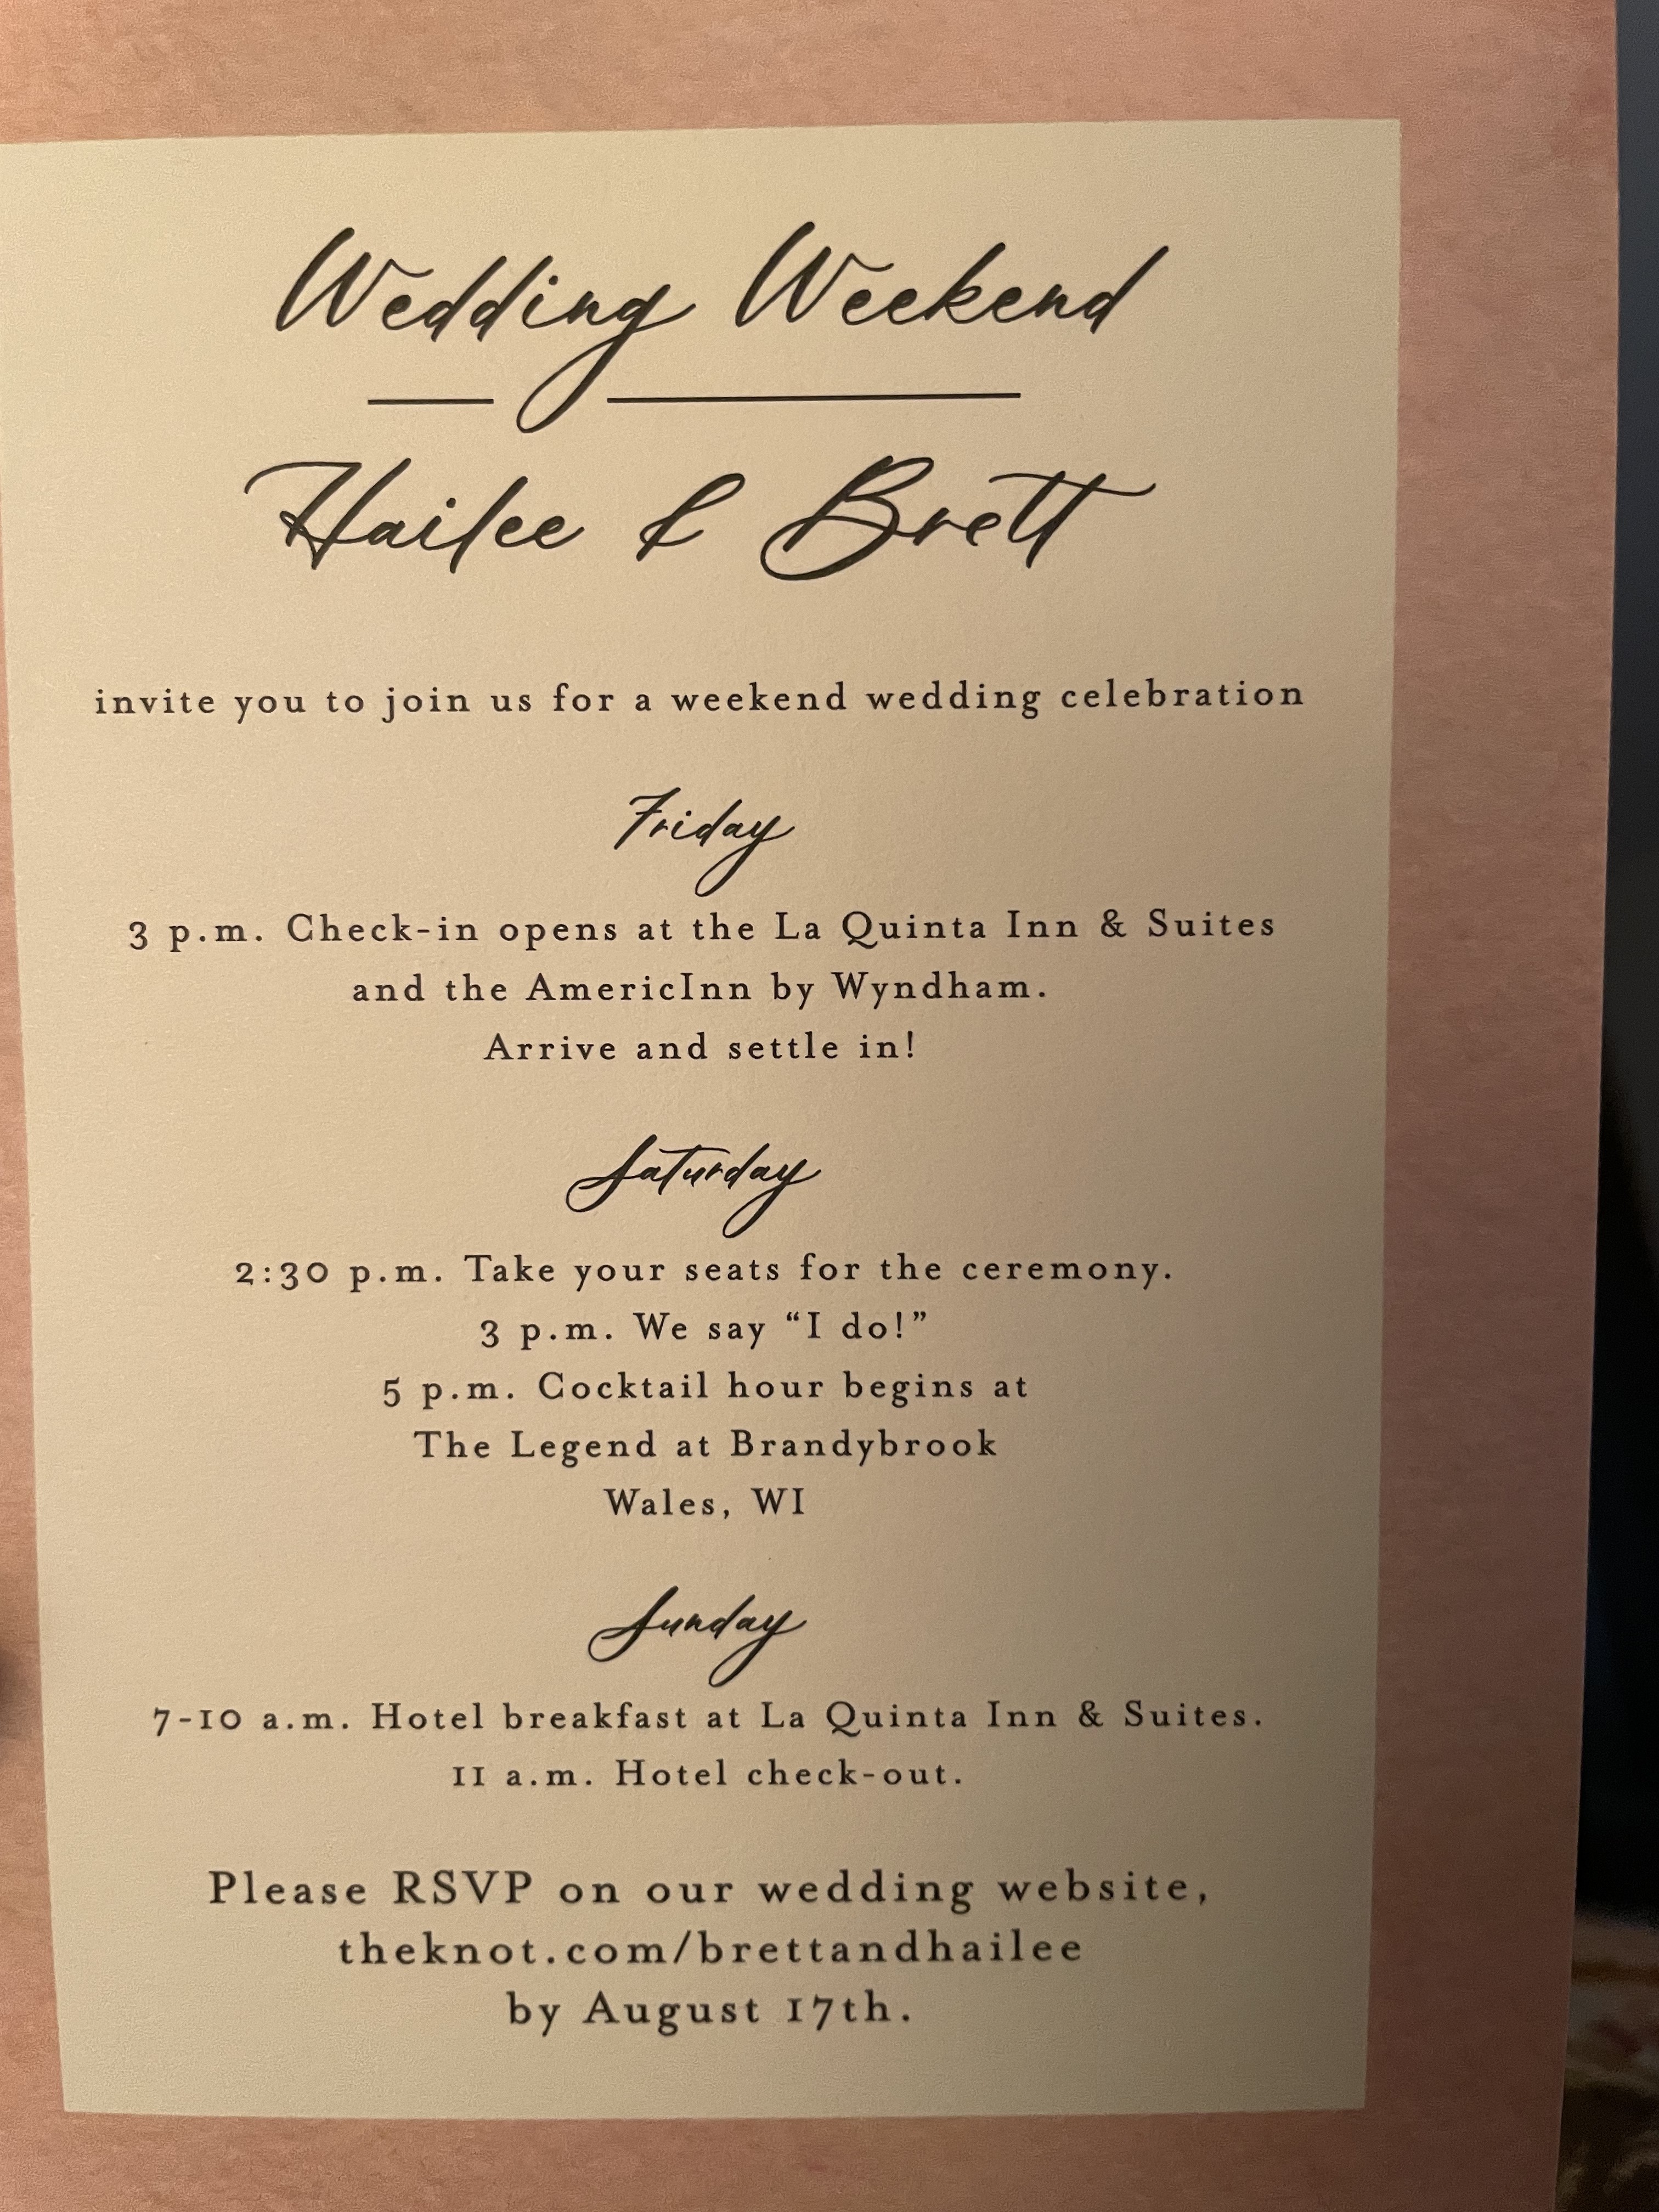 Wedding Weekend
Hailee & Brett
invite you to join us for a weekend wedding celebration
Friday
3 p.m. Check-in opens at the La Quinta Inn & Suites
and the AmericInn by Wyndham.
Arrive and settle in!
Saturday
2:30 p.m. Take your seats for the ceremony.
3 p.m. We say “I do!”
5 p.m. Cocktail hour begins at
The Legend at Brandybrook
Wales, WI
Sunday
7-10 a.m. Hotel breakfast at La Quinta Inn & Suites.
11 a.m. Hotel check-out.
Please RSVP on our wedding website,
theknot.com/brettandhailee
by August 17th.